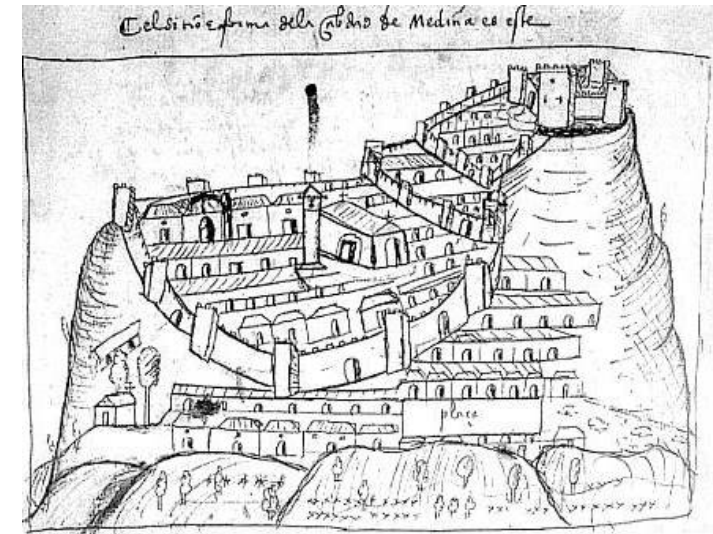 el sitio e forma dela çibdad de Medina es este
plaça